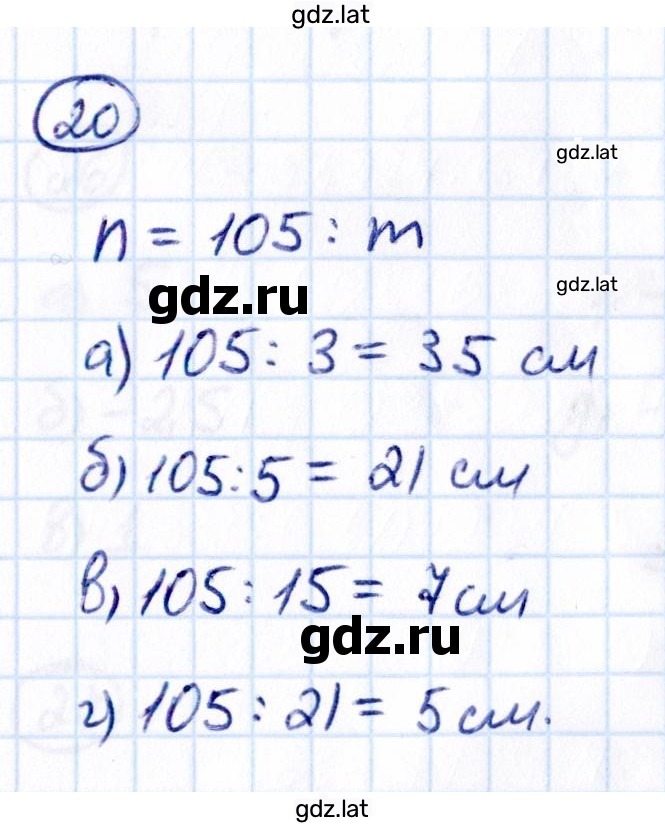 gdz.lat
20
gdz.lat
n = 105 : m
gdz.ru
gdz.lat
а) 105 : 3 = 35 см
б) 105 : 5 = 21 см
в) 105 : 15 = 7 см
gdz.ru
г) 105 : 21 = 5 см.
gdz.lat